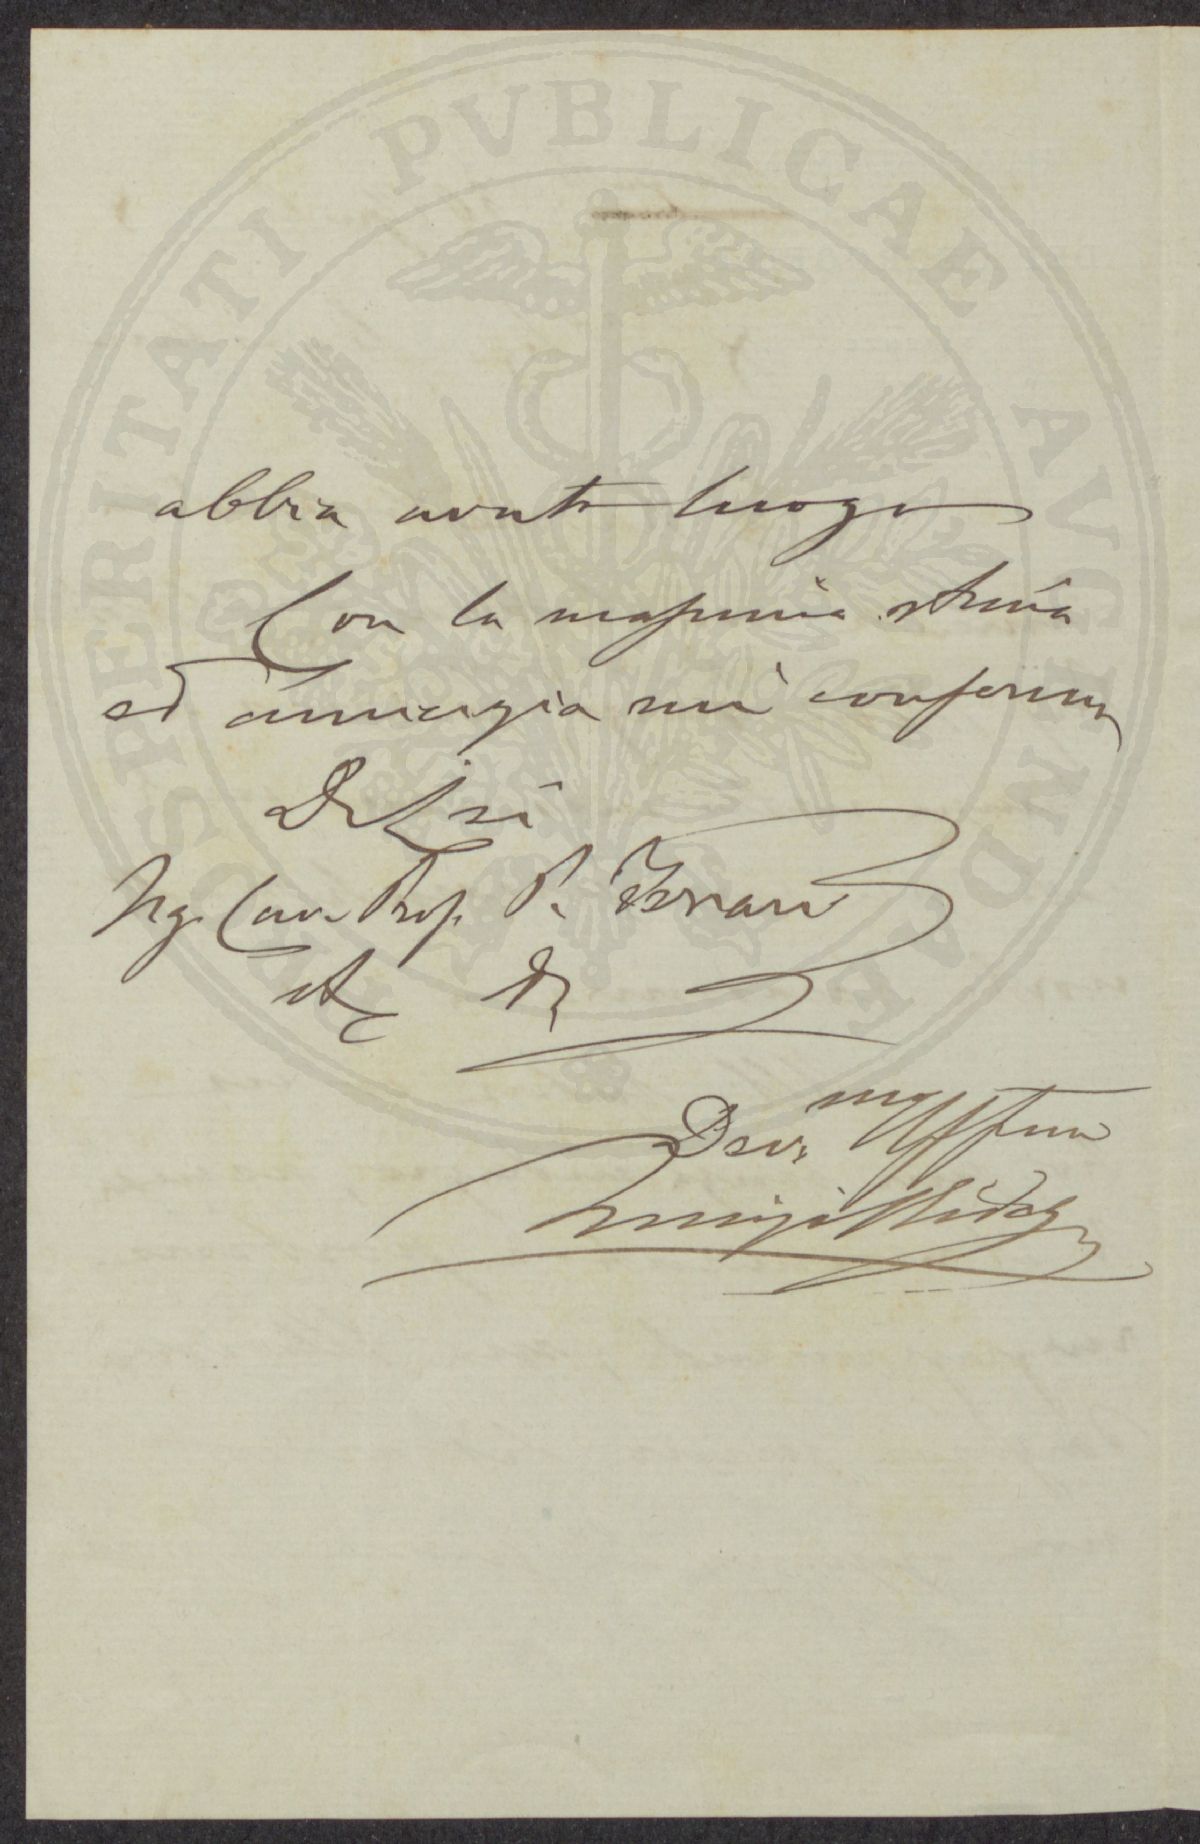 PROSPERITATI PVBLICAE AVGENDAE
abbia avuto luogo
Con la massima stima
ed amicizia mi confermo
Di Lei
Sig. Cav. Prof. P. Ferrari
Dev.mo
Luigi